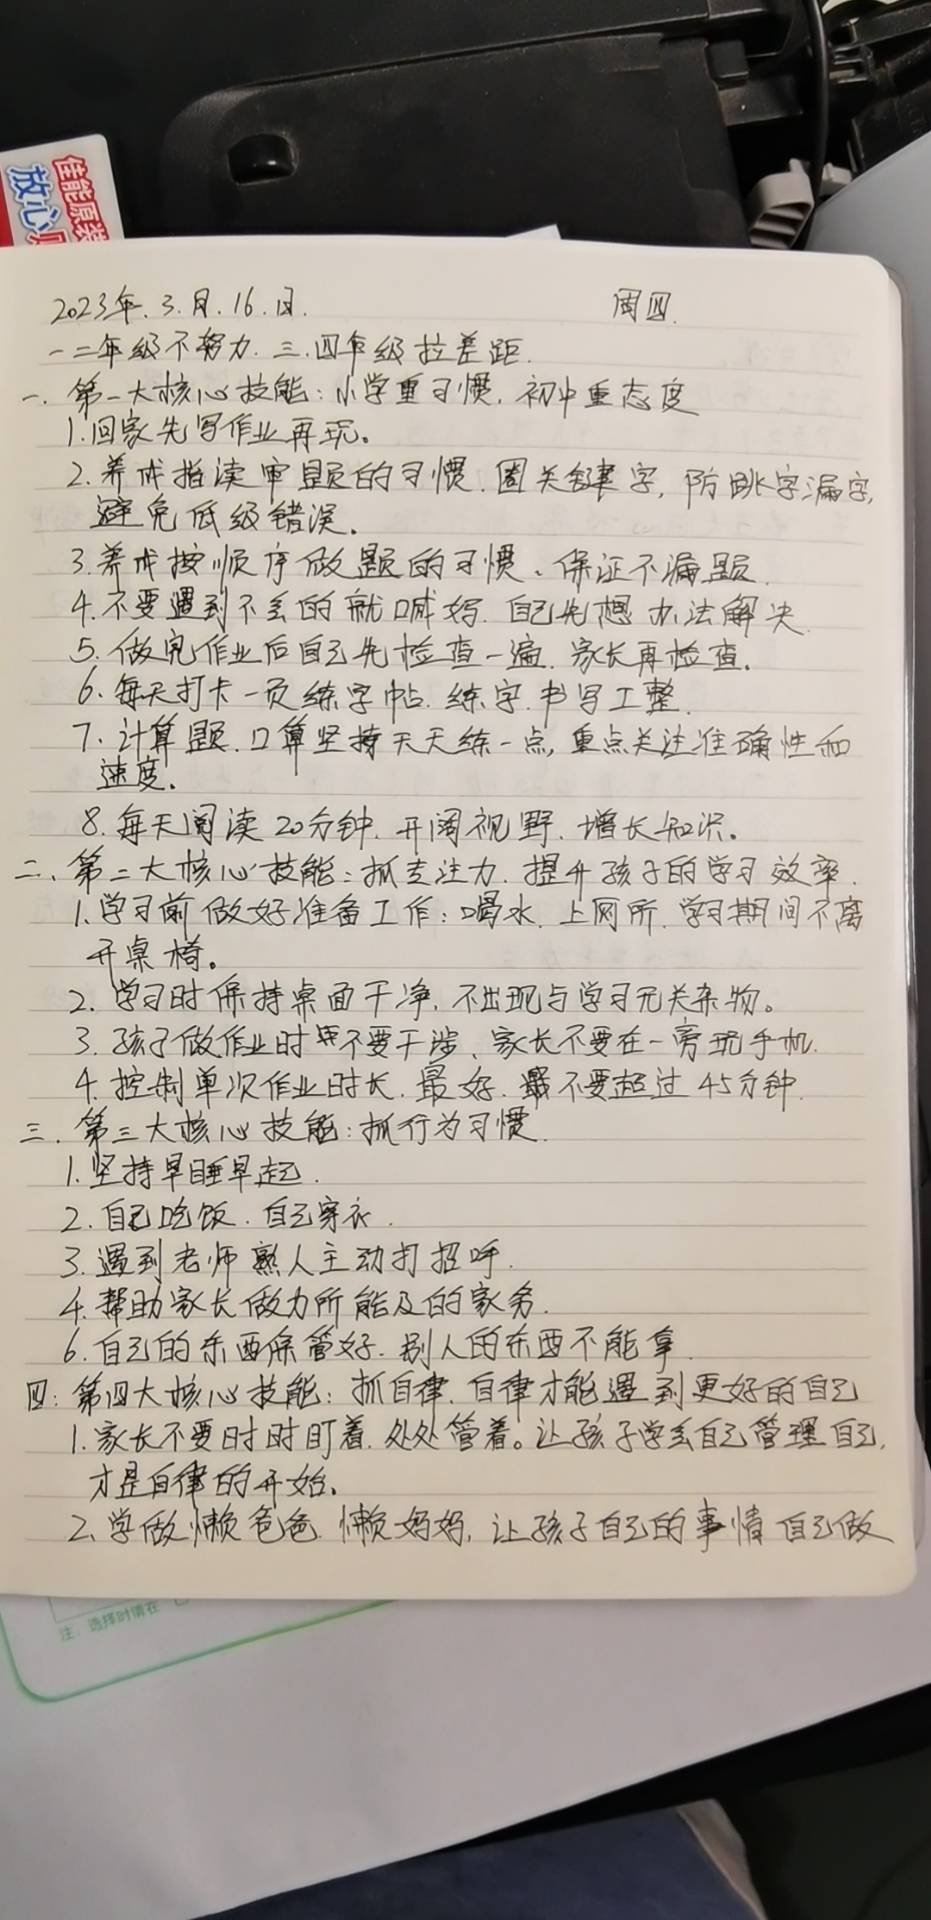 佳能原装
放心
2023年.3.月.16.日.
周四.
一二年级不努力.三.四年级拉差距.
一.第一大核心技能:小学重习惯.初中重态度
1.回家先写作业再玩。
2.养成指读审题的习惯.圈关键字,防跳字漏字,
避免低级错误。
3.养成按顺序做题的习惯、保证不漏题.
4.不要遇到不会的就喊妈.自己先想办法解决.
5.做完作业后自己先检查一遍.家长再检查.
6.每天打卡一页练字帖.练字.书写工整.
7.计算题.口算坚持天天练一点,重点关注准确性和
速度.
8.每天阅读20分钟.开阔视野.增长知识。
二、第二大核心技能:抓专注力.提升孩子的学习效率.
1.学习前做好准备工作:喝水.上网所.学习期间不离
开桌椅。
2.学习时保持桌面干净.不出现与学习无关杂物。
3.孩子做作业时不要干涉、家长不要在一旁玩手机.
4.控制单次作业时长.最好.最不要超过45分钟.
三.第三大核心技能:抓行为习惯.
1.坚持早睡早起.
2.自己吃饭.自己穿衣.
3.遇到老师熟人主动打招呼.
4.帮助家长做力所能及的家务.
6.自己的东西保管好.别人的东西不能拿.
四:第四大核心技能:抓自律.自律才能遇到更好的自己
1.家长不要时时盯着.处处管着。让孩子学会自己管理自己,
才是自律的开始。
2.学做懒爸爸.懒妈妈,让孩子自己的事情自己做
注:选择时请在